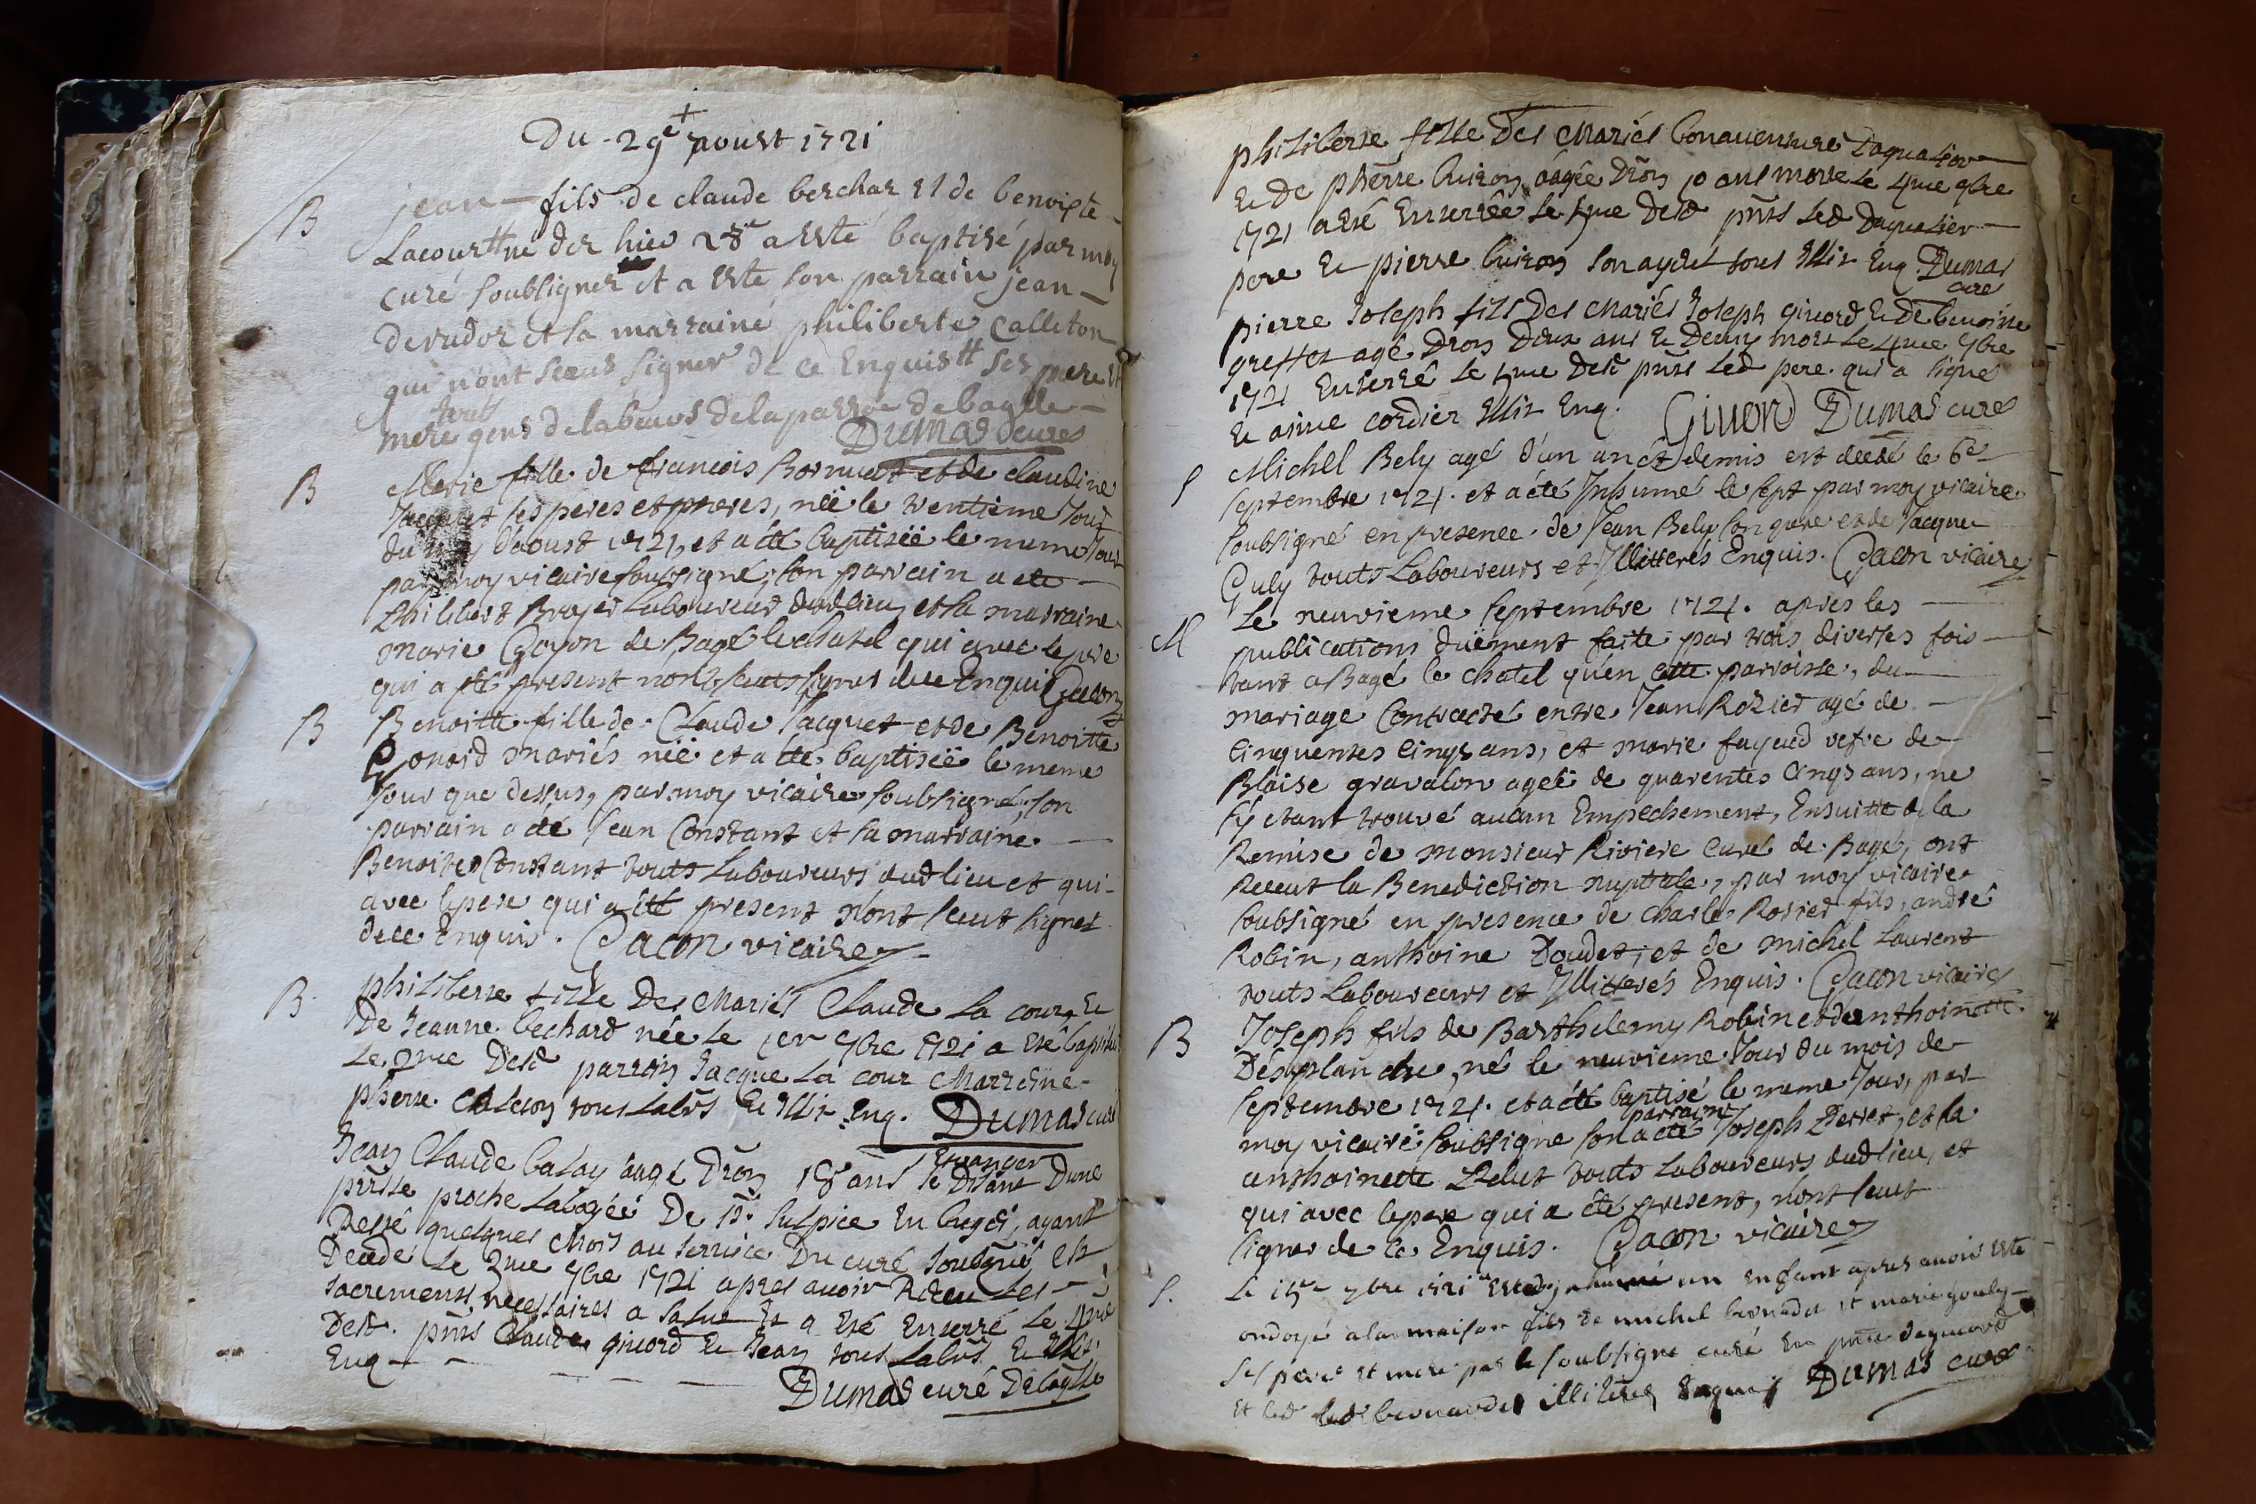 Du 29e aoust 1721
B
jean fils de claude berchar et de benoiste
Lacour né der hier 28e a esté baptisé par moy
curé soubsigner et a esté son parrain jean
derudor et sa marraine philiberte Calleton
qui n'ont sceus signer de ce Enquis ses pere et
mere touts gens de labeurs de la parroe de bagⱥlle
Dumas curé
B
Marie fille de francois et de claudine
ses peres et meres, née le trentieme Jour
du d'aoust 1721, et a été baptiseë le meme Jour
par moy vicaire soussigné, son parrain a eté
Philibert Broyer Laboureur dudlieu, et sa marraine
marie Goyon de Bagé le chatel qui avec le pere
qui a été present n'ont sceuts signer de ce Enquis Gacon
B
Benoitte fille de Claude Jacquet et de Benoitte
Ponard mariés neë et a été baptiseë le meme
Jour que dessus, par moy vicaire soubsigné, son
parrain a eté Jean Constant et sa marraine
Benoite Constant touts Laboureurs dudlieu et qui
avec le pere qui a été present n'ont sceut signer
de ce Enquis. Gacon vicaire
B
philiberte fille Des Mariés Claude La cour Et
De Jeanne bechard née le 1er 7bre 1721 a eté baptisée
Le 2me Desd parrain Jacque La cour Marreine
pherte Caleton tous labrs Et Illit Enq. Dumas curé
Jean Claude balay aagé Dron 18 ans se Disant Etranger Dune
prsse proche De St. Sulpice En bugei, ayant
Resté quelques Mois au service Du curé soubsigné est
Decede Le 2me 7bre 1721 apres avoir Receu Les
sacrements necessaires a salut Et a Eté Enterré Le 4me
Desd. pnts Claude givord Et Jean tous Labrs Et Illit.
Enq
Dumas curé
philiberte fille Des Mariés bonaventure Daquelier
Et De pherte buiron aagée Dron 10 ans morte Le 4me 7bre
1721 a Eté Enterrée Le 5me Desd pnts Led Daquelier
pere Et pierre buiron son ayeul tous Illit Enq. Dumas
curé
pierre Joseph fils Des Mariés Joseph givord Et De benoitte
greffet agé Dron Deux ans Et Demy mort Le 4me 7bre
1721 Enterré Le 5me Desd pnts Led pere qui a signé
Et aime cordier Illit Enq. Givord Dumas curé
S
Michel Bely agé d'un an et demis est decedé le 6e
septembre 1721. et a été Inhumé le sept par moy vicaire
soubsigné en presence de Jean Bely son pere et de Jacque
Guly touts Laboureurs et Illitterés Enquis. Gacon vicaire
M
Le neuvieme septembre 1721. apres les
publications duëment faite par trois diverses fois
tant a Bagé le chatel qu'en cette parroisse, du
mariage Contracté entre Jean Rozier agé de
cinquentes cinqs ans, et marie fayard vefve de
Blaise gravalon ageë de quarentes cinqs ans, ne
s'y etant trouvé aucun Empechement, Ensuitte de la
Remise de monsieur Riviere Curé de Bagé, ont
Receut la Benediction nuptiale, par moy vicaire
soubsigné en presence de Charle Rosier fils, andré
Robin, anthoine Doudet, et de michel Laurent
touts Laboureurs et Illitterés Enquis. Gacon vicaire
B
Joseph fils de Barthelemy Robin et d'anthoinette
Désplanche, né le neuvieme Jour du mois de
septembre 1721. et a été baptisé le meme Jour, par
moy vicaire soubsigne son parrain a eté Joseph Perret, et la
anthoinette Pelut touts Laboureurs dudlieu, et
qui avec le pere qui a été present, n'ont sceut
signer de ce Enquis. Gacon vicaire
S.
Le 7bre 1721 un enfant apres avoir esté
ondoyé a la maison fils de michel bernadet et marie gouly
ses pere et mere par le soubsigné curé En
et led bernardet illiterez Enquis Dumas curé